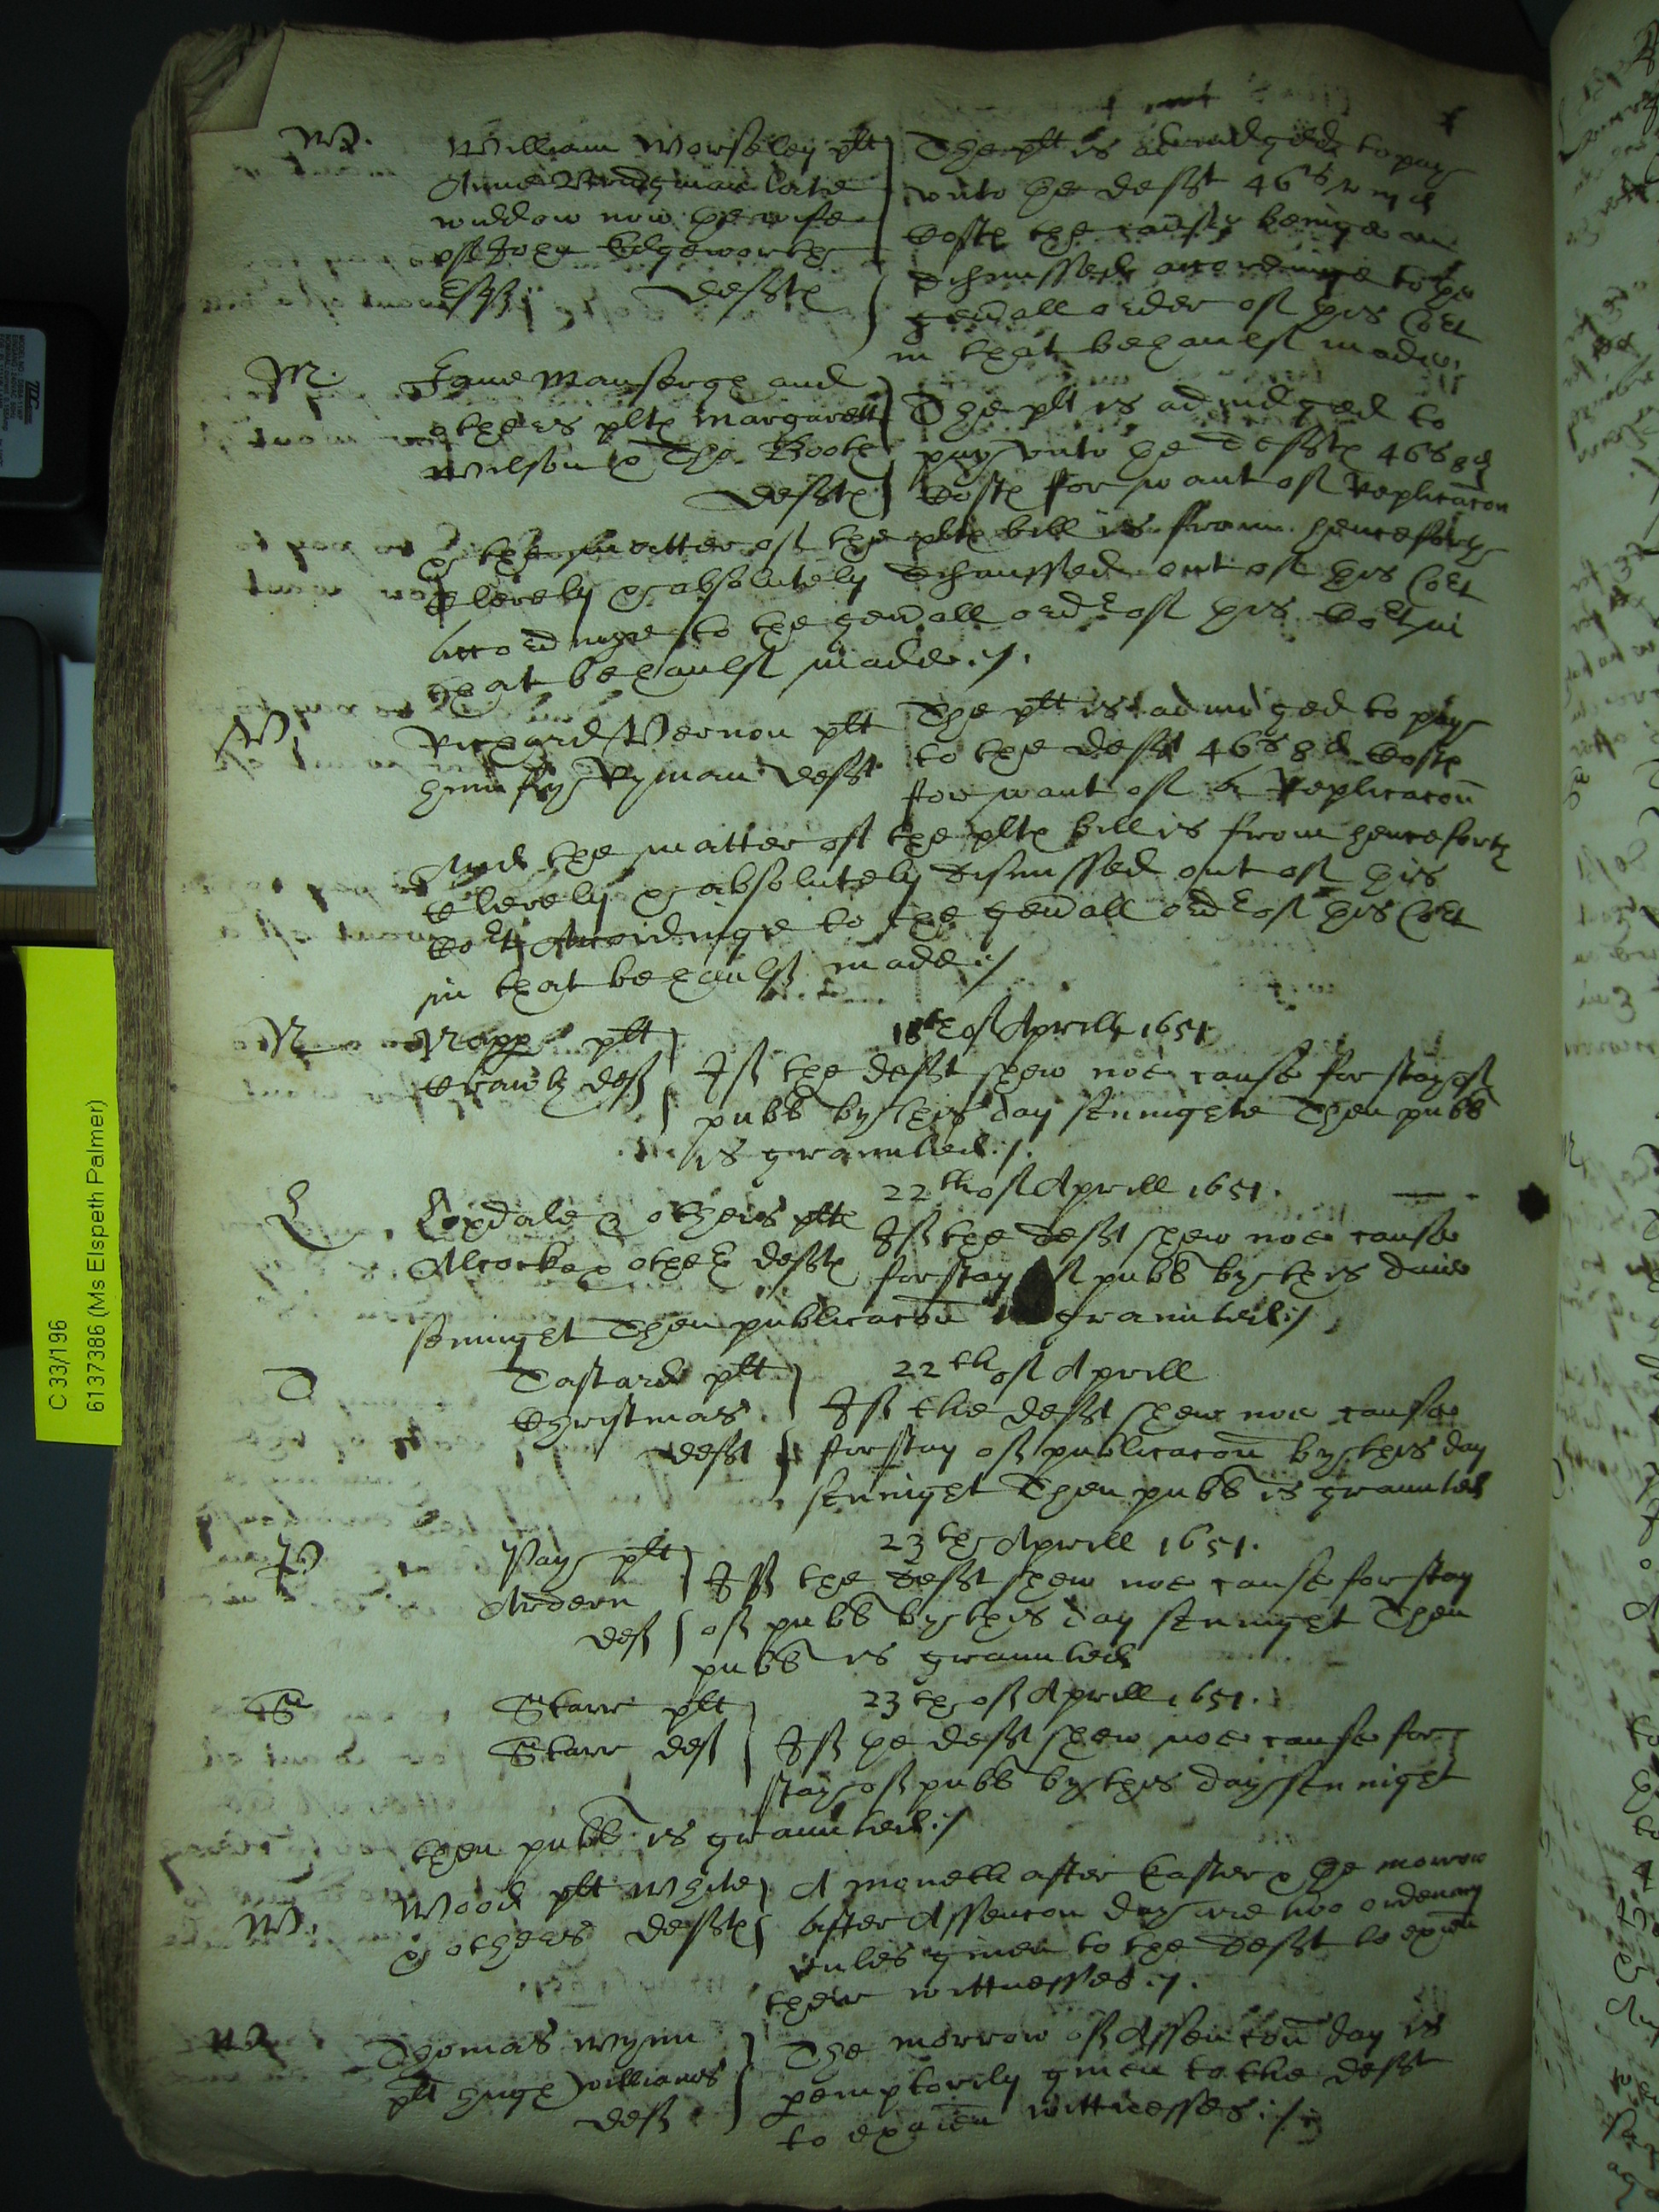 W.
William Worseley plt
Anne Bridgman late
widdow now the wife
of John Edgeworth
Esqr defftes
The plt is adiudged to pay
vnto the defft 46s
Costes the cause beinge
dismissed accordinge to the
gen'all order of this Cort
in that behaulf made.
M.
Jane Manserge and
others pltes Margarett
Wilson & Tho. Boote
defftes
The plt is adiudged to
pay vnto the defftes 46s 8d
Costes for want of Replicacon
& the matter of the pltes bill is from henceforth
clerely & absolutely dismissed out of this Cort
Accordinge to the gen'all order of this Cort in
that behaulf made./.
V.
Richard Vernon plt
Humfry Ryman defft
The plt is adiudged to pay
to the defft 46s 8d Costes
for want of a Replicacon
And the matter of the pltes bill is from henceforth
clerely & absolutely dismissed out of this
Cort Accordinge to the gen'all order of this Cort
in that behaulf made:/
N
Napp plt
Crawly def
18th of Aprill 1651
If the defft shew noe cause for stay of
pubb by this day senight Then pubb
is graunted:/.
L
Lopdale & others pltes
Alcocke & other defftes
22th of Aprill 1651.
If the defft shew noe cause
for stay of pubb by this daie
senight Then publicacon is graunted:/
T
Tastard plt
Christmas
defft
22th of Aprill
If the defft shew noe cause
for stay of publicacon by this day
senight Then pubb is graunted
P
Pay plt
Ardern
def
23th Aprill 1651.
If the defft shew noe cause for stay
of pubb by this day senight Then
pubb is graunted
S
Starr plt
Starr def
23th of Aprill 1651.
If the defft shew noe cause for
stay of pubb by this day senight
then pubb is graunted:/
W.
Wood plt White
& others defftes
A moneth after Easter & the morrow
after Assencon day are two ordenary
rules giuen to the defft to exam
their wittnesses./.
W
Thomas Wynn
plt Hugh Williams
def
The morrow of Assencon day is
peremptorily giuen to the defft
to examen wittnesses:/
C 33/196
6137386 (Ms Elspeth Palmer)